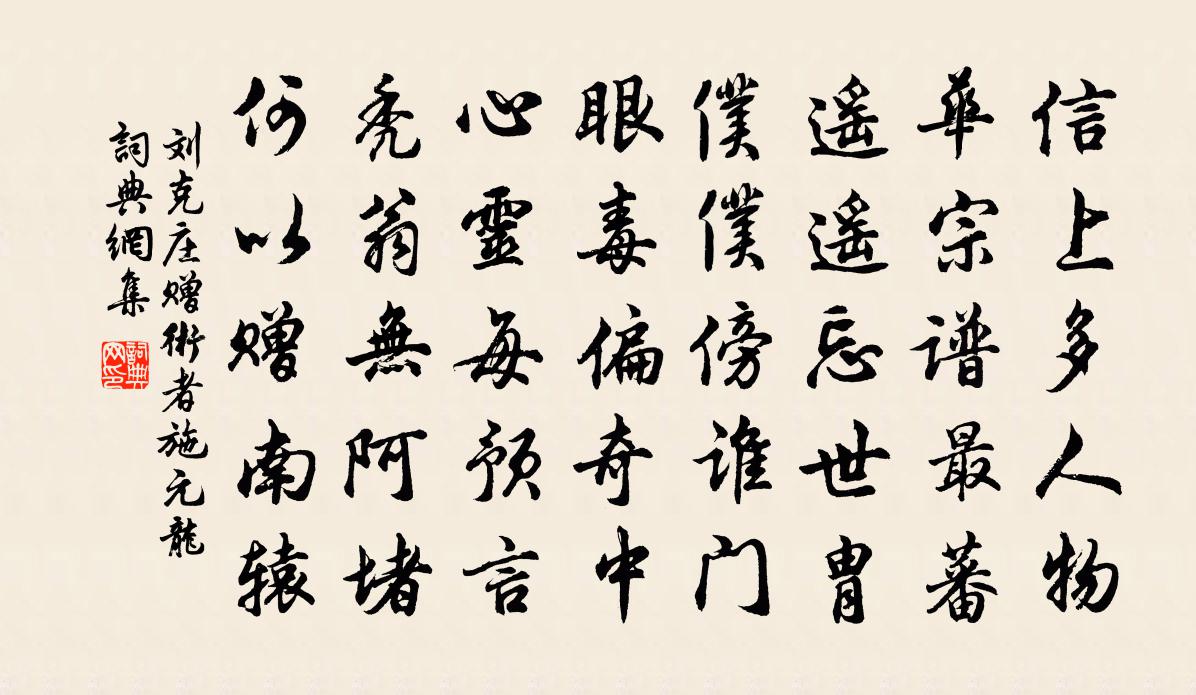 信上多人物
華宗谱最蕃
遥遥忘世胄
僕僕傍谁门
眼毒偏奇中
心靈每预言
秃翁無阿堵
何以赠南辕
刘克庄赠術者施元龍
詞典網集
詞典
网印